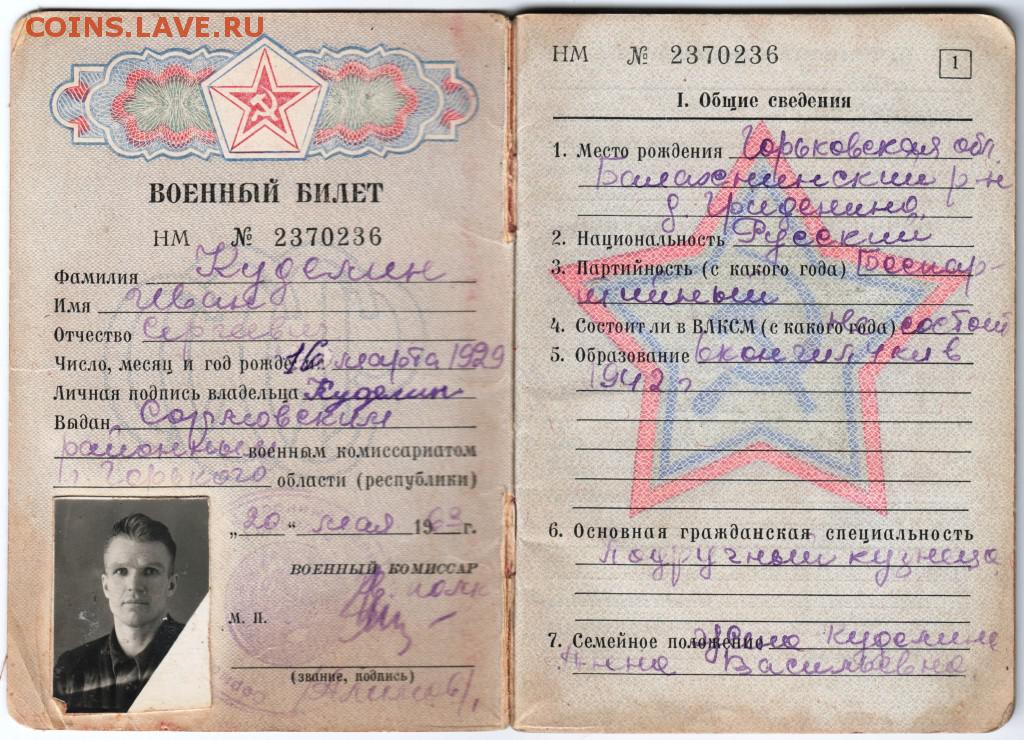 COINS.LAVE.RU
ВОЕННЫЙ БИЛЕТ
НМ № 2370236
Фамилия Куделин
Имя Иван
Отчество Сергеевич
Число, месяц и год рожде 16 марта 1929
Личная подпись владельца Куделин
Выдан Сормовским
районным военным комиссариатом
г. Горького области (республики)
„20“ мая 196 г.
ВОЕННЫЙ КОМИССАР
М. П.
(звание, подпись)
НМ № 2370236
1
I. Общие сведения
1. Место рождения Горьковская обл.
Балахнинский р-н
д.
2. Национальность Русский
3. Партийность (с какого года) Беспар-
тийный
4. Состоит ли в ВЛКСМ (с какого года) не состоит
5. Образование окончил 4 кл в
1942 г
6. Основная гражданская специальность
Подручный кузнеца
7. Семейное положение Жена Куделина
Анна Васильевна